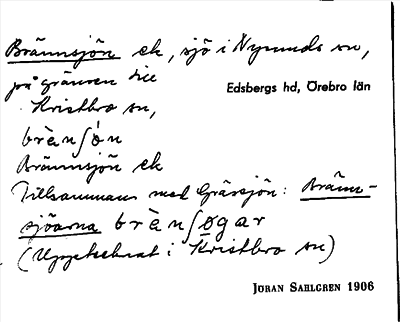 Brännsjön ek, sjö i Nysunds sn,
på gränsen till
Edsbergs hd, Örebro län
Kristbro sn,
brä̀nʃón
Brännsjön ek
Tillsammans med Gräsjön: Bränn-
sjöarna brä̀nʃo̱gar
(Upptecknat i Kristbro sn)
JÖRAN SAHLGREN 1906